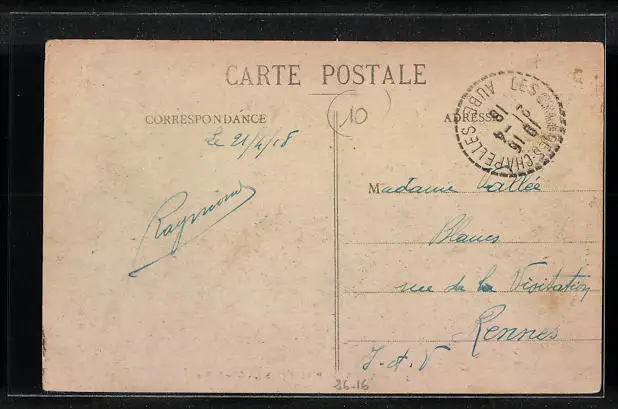 CARTE POSTALE
CORRESPONDANCE
10
ADRESSE
LES GRANDES-CHAPELLES AUBE
10-16
21-4
18
Le 21/4/18
Madame Vallée
Raymond
Blancs
rue de la Visitation
Rennes
I-et-V
36-16